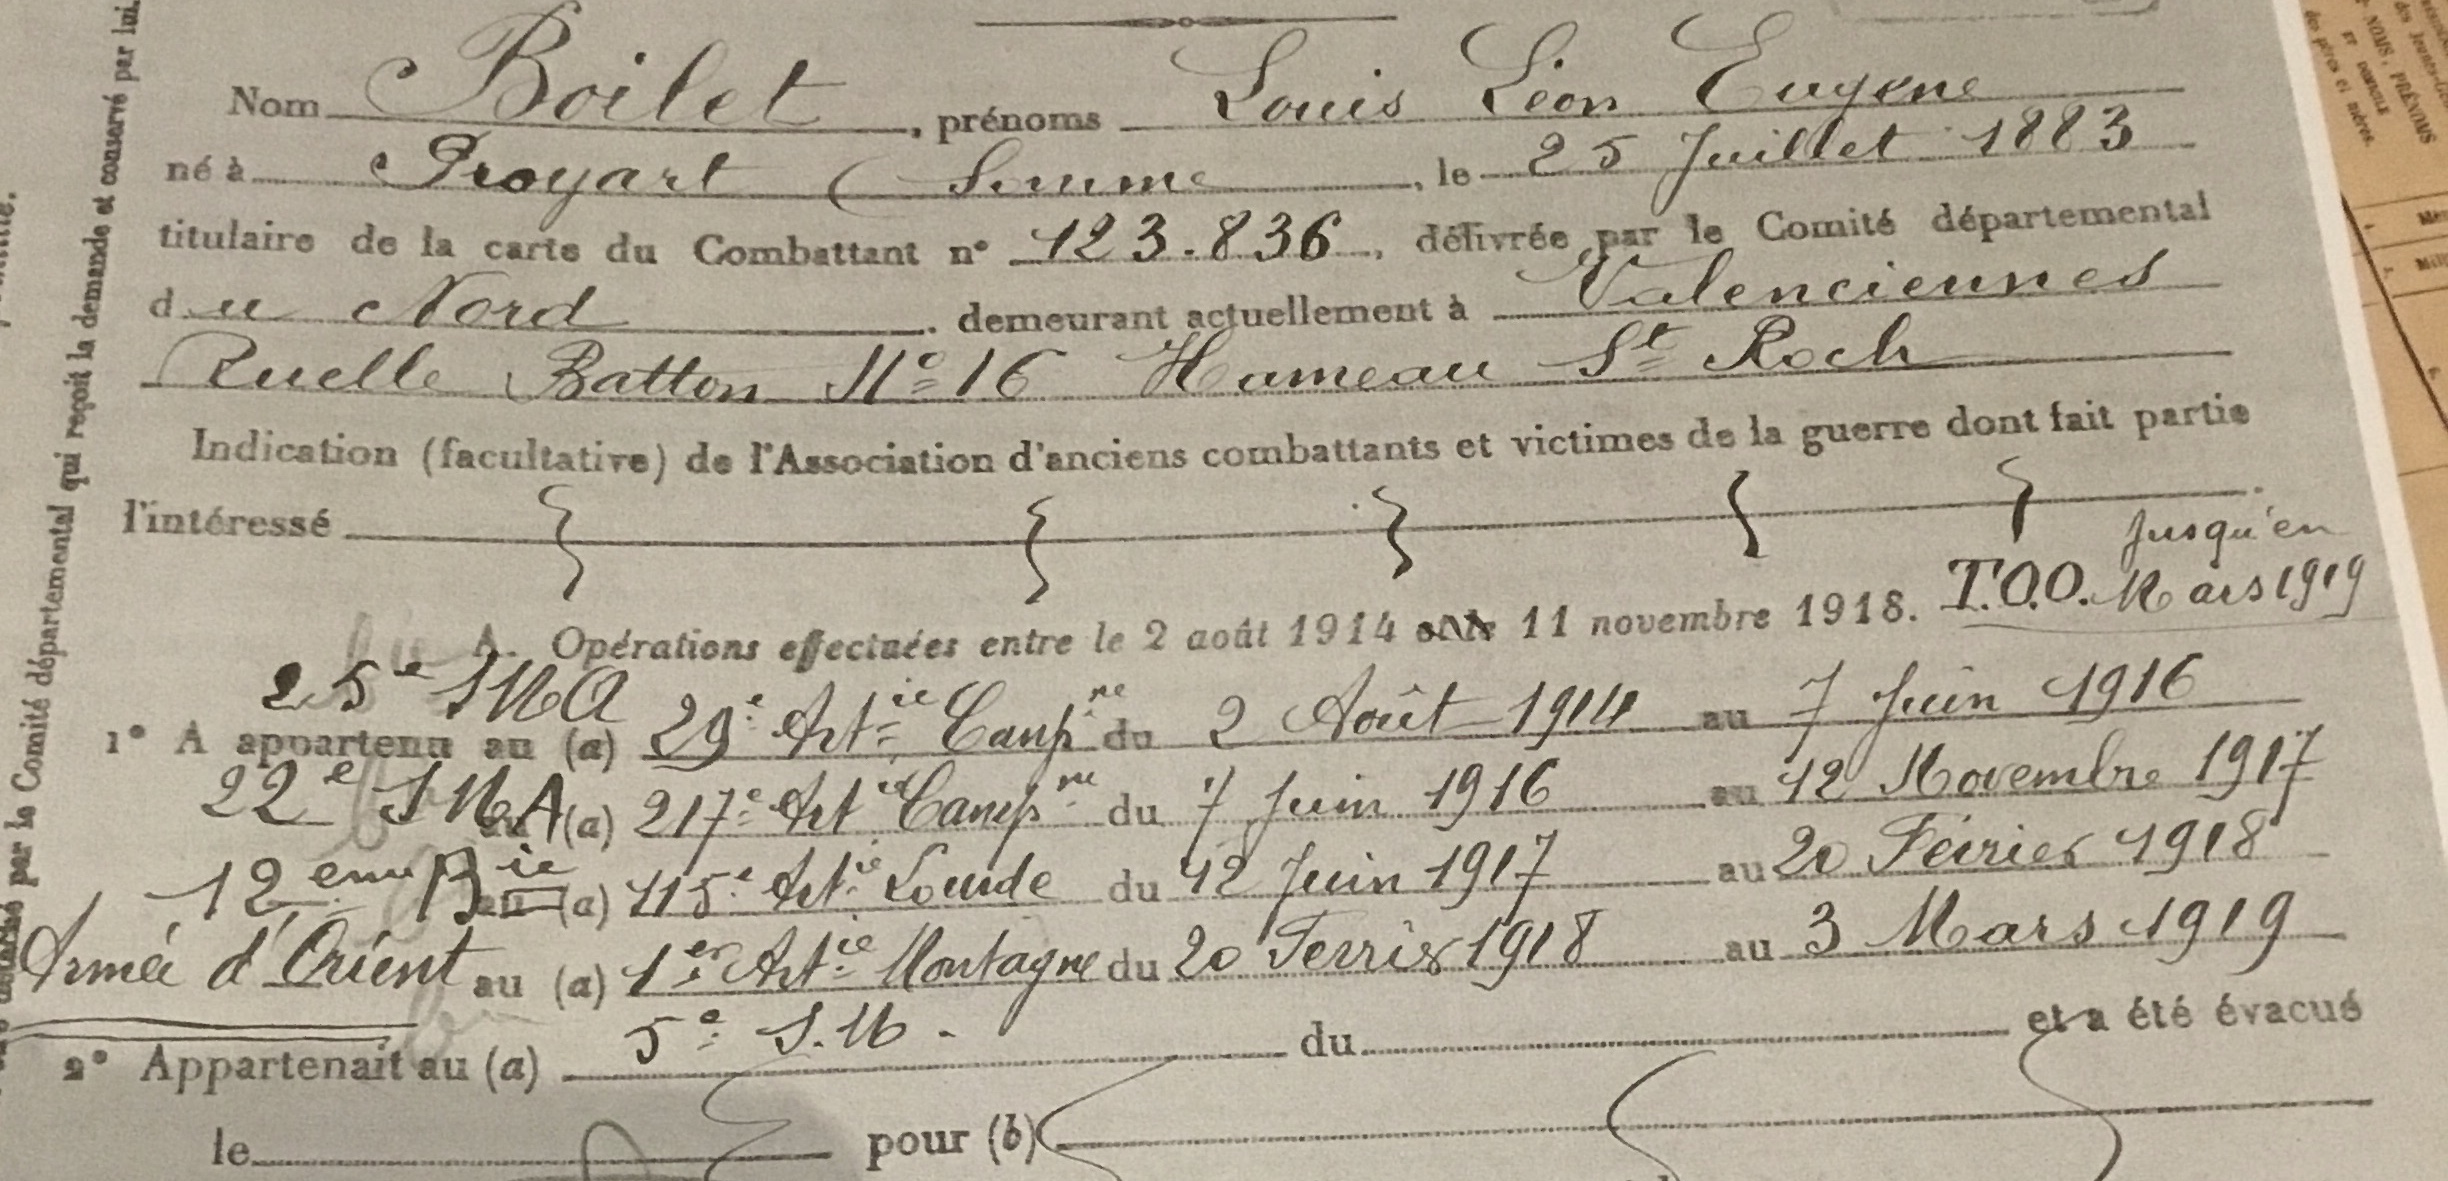 Nom Boilet, prénoms Louis Léon Eugène
né à Proyart (Somme, le 25 Juillet 1883
titulaire de la carte du Combattant n° 123.836, délivrée par le Comité départemental
du Nord. demeurant actuellement à Valenciennes
Ruelle Batton N° 16 Hameau St Roch
Indication (facultative) de l'Association d'anciens combattants et victimes de la guerre dont fait partie
l'intéressé
jusqu'en
A. Opérations effectuées entre le 2 août 1914 et le 11 novembre 1918. T.O.O. Mars 1919
25e SMA
1° A appartenu au (a) 29e Artie Campne du 2 Août 1914 au 7 Juin 1916
22e SMA au (a) 217e Artie Campne du 7 Juin 1916 au 12 Novembre 1917
12eme Bie au (a) 115e Artie Lourde du 12 Juin 1917 au 20 Février 1918
Armée d'Orient au (a) 1er Artie Montagne du 20 Ferrier 1918 au 3 Mars 1919
5e S.M.
2° Appartenait au (a) du et a été évacué
le pour (b)
qui reçoit la demande et conservé par lui.
par le Comité départemental
NOMS, PRÉNOMS
des pères et mères.